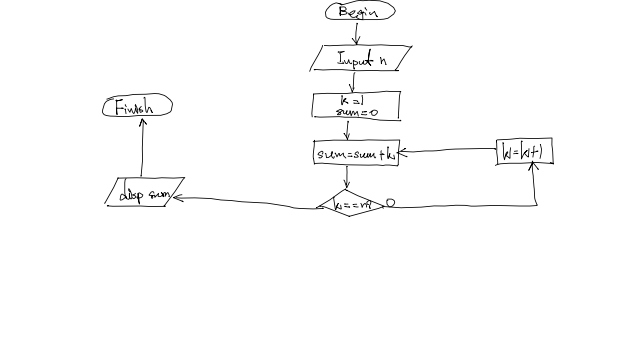 Begin
Input n
k=1
sum=0
sum=sum+k
k=k+1
k==n?
0
disp sum
Finish